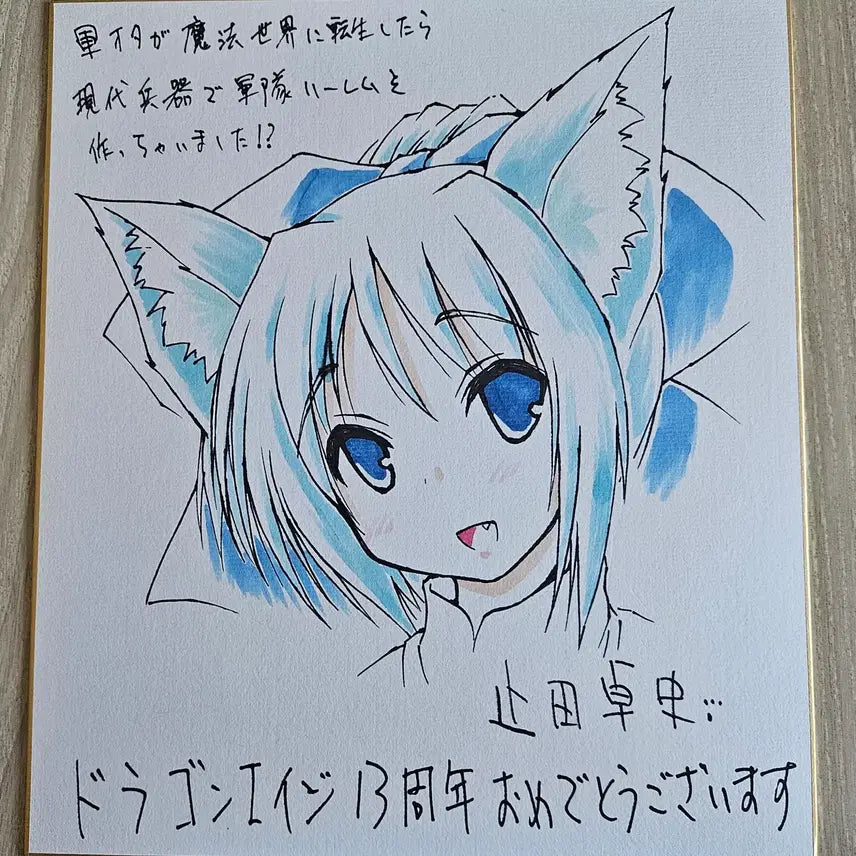 軍オタが魔法世界に転生したら
現代兵器で軍隊ハーレムを
作っちゃいました!?
止田卓史
ドラゴンエイジ13周年おめでとうございます